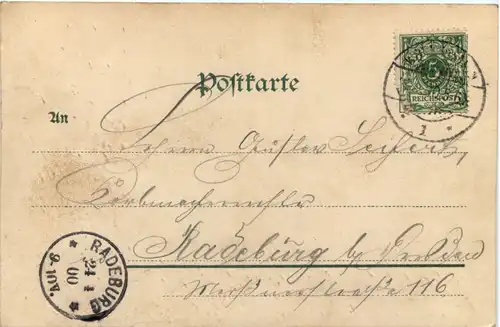 Postkarte
5
REICHSPOST
1
An
Herrn Gustav Seifert,
Korbmachermstr
Radeburg bei Dresden
Meißnerstraße 116
RADEBURG
24 1
00
9-10V.